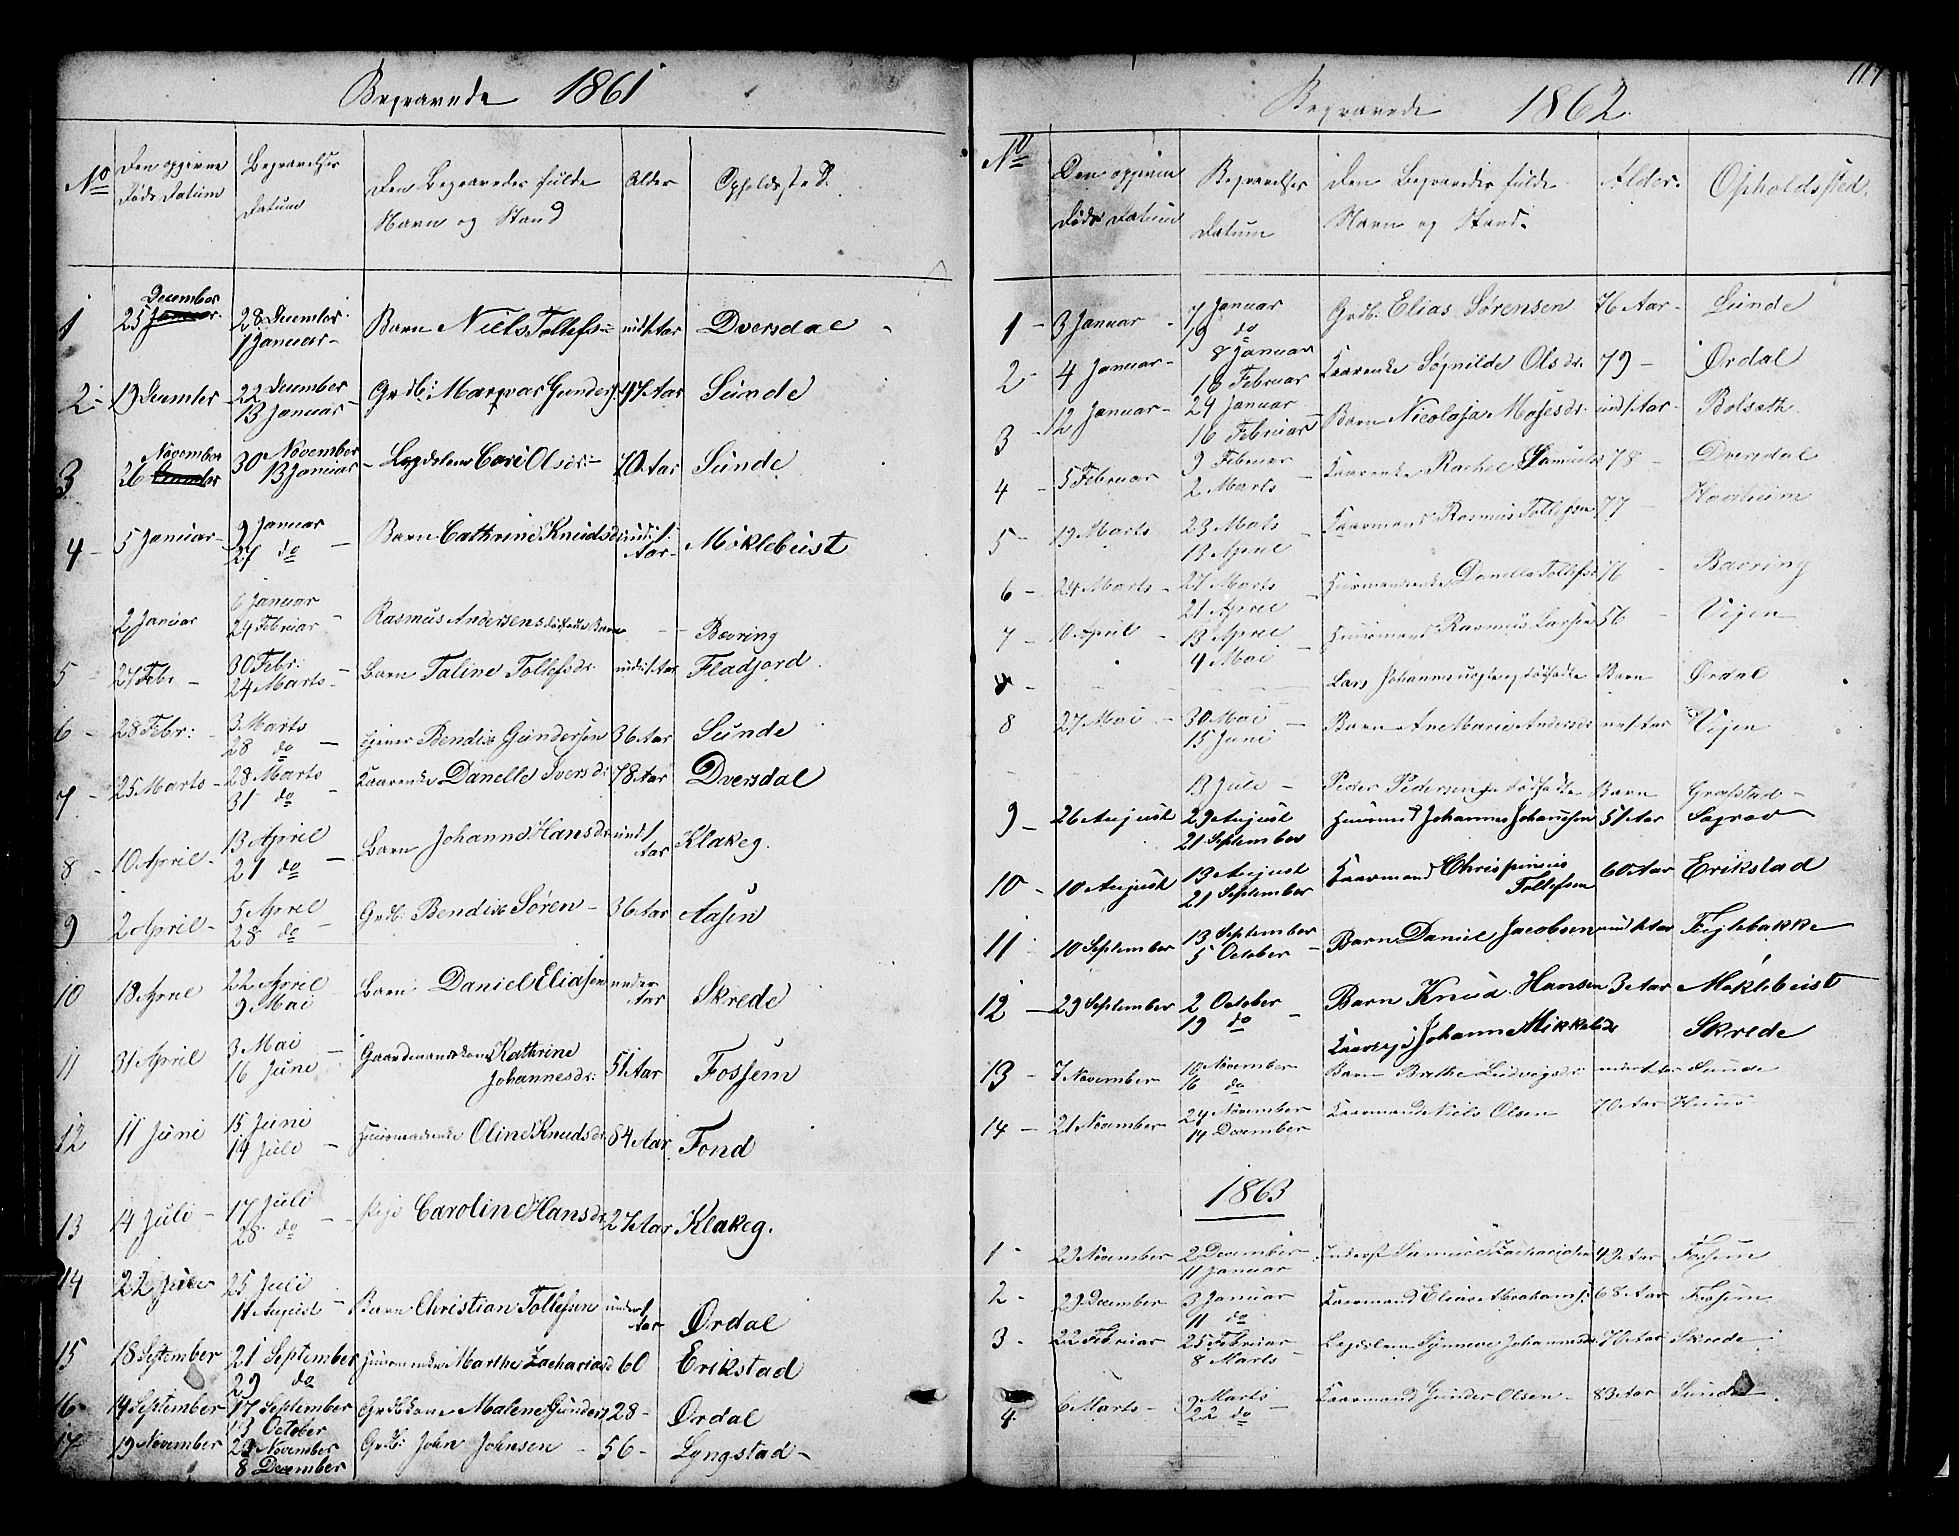 Begravede 1861
No
Den opgivne Døds Datum
Begravelses Datum
Den Begravedes fulde Navn og Stand
Alder
Opholdssted
1 25 December 28 December 1 Januar Barn Niels Tollefsen und 1 Aar Dversdal
2 19 December 22 December 13 Januar Grdb: Gunders 47 Aar Sunde
3 26 November 30 November 13 Januar Lægdslem Cari Olsdr: 70 Aar Sunde
4 5 Januar 9 Januar 27 do Barn Cathrine Knudsdr und: 1 Aar Møklebust
2 Januar 6 Januar 24 Februar Rasmus Andersens dødfødte Barn Bævring
5 27 Febr 30 Febr: 24 Marts Barn Taline Tollefsdr. und: 1 Aar Fladjord
6 28 Febr: 3 Marts 28 do Tjener Bendix Gundersen 36 Aar Sunde
7 25 Marts 28 Marts 31 do Kaarenke Danelle Iversdr 78 Aar Dversdal
8 10 April 13 April 21 do Barn Johanne Hansdr und 1 Aar Klakeg.
9 2 April 5 April 28 do Grdb: Bendix Søren 36 Aar Aasen
10 18 April 22 April 9 Mai Barn Daniel Eliasen under Aar Skrede
11 31 April 3 Mai 16 Juni Gaardmandskone Kathrine Johannesdr: 51 Aar Fossem
12 11 Juni 15 Juni 19 Juli Huusmandsenke Oline Knudsdr 84 Aar Fond
13 14 Juli 17 Juli 28 do Pige Caroline Hansdr 27 Aar Klakeg.
14 22 Juli 25 Juli 11 August Barn Christian Tollefsen under 1 Aar Ørdal
15 18 September 21 September 29 do Marthe Zachariasd 60 Erikstad
16 14 September 17 September 13 October Grdbkone Malene Gunders 28 Ørdal
17 19 November 23 November 8 December Grdb: John Johnsen 56 Lyngstad
117
Begravede 1862
No
Den opgivne Døds Datum
Begravelses Datum
Den Begravedes fulde Navn og Stand.
Alder.
Opholdssted.
1 3 Januar 7 Januar 19 do Grdb. Elias Sørensen 76 Aar Sunde
2 4 Januar 8 Januar 16 Februar Kaarenke Søgnilde Olsdr. 79 Ørdal
3 12 Januar 24 Januar 16 Februar Barn Nicolaja Mosesdr. und 1 Aar Bolseth
4 5 Februar 9 Februar 2 Marts Kaarenke Rachel Samuelsd 78 Dversdal
5 19 Marts 23 Mats 13 April Kaarmand Rasmus Tollefsen 77
6 24 Marts 27 Marts 21 April Danelle Tollefsd 76 Bævring
7 10 April 13 April 4 Mai Huusmand Rasmus Larsen 56 Vejen
Lars Johannes dødfødte Barn Ørdal
8 27 Mai 30 Mai 15 Juni Barn Ane Marie Andersdr Vejen
13 Juli Peder Pedersens dødfødte Barn Grafstad
9 26 August 29 August 21 September Huusmd Johannes Johannssen 51 Aar Søgrov
10 10 August 13 August 21 September Kaarmand Chrispinus Tollefsen 60 Aar Erikstad
11 10 September 13 September 5 October Barn Daniel Jacobsen und 1 Aar Figlebakke
12 29 September 2 October 19 do Barn Knud Hansen 3 Aar Møklebust
Johanne Mikkelsdr Skrede
13 7 November 10 November 16 do Barn Brithe Ludvigsdr Sunde
14 21 November 24 November 14 December Kaarmand Niels Olsen 70 Aar Huus
1863
1 29 November 2 December 11 Januar Inderst Samuel Zachariasen 42 Aar Fossem
2 29 December 3 Januar 11 do Kaarmand Elias Abrahams: 68 Aar Fossem
3 22 Februar 25 Februar 8 Marts Legdslem Synneve Johannesdr 70 Aar Skrede
4 6 Marts 9 Marts 22 do Kaarmand Gunder Olsen 83 Aar Sunde